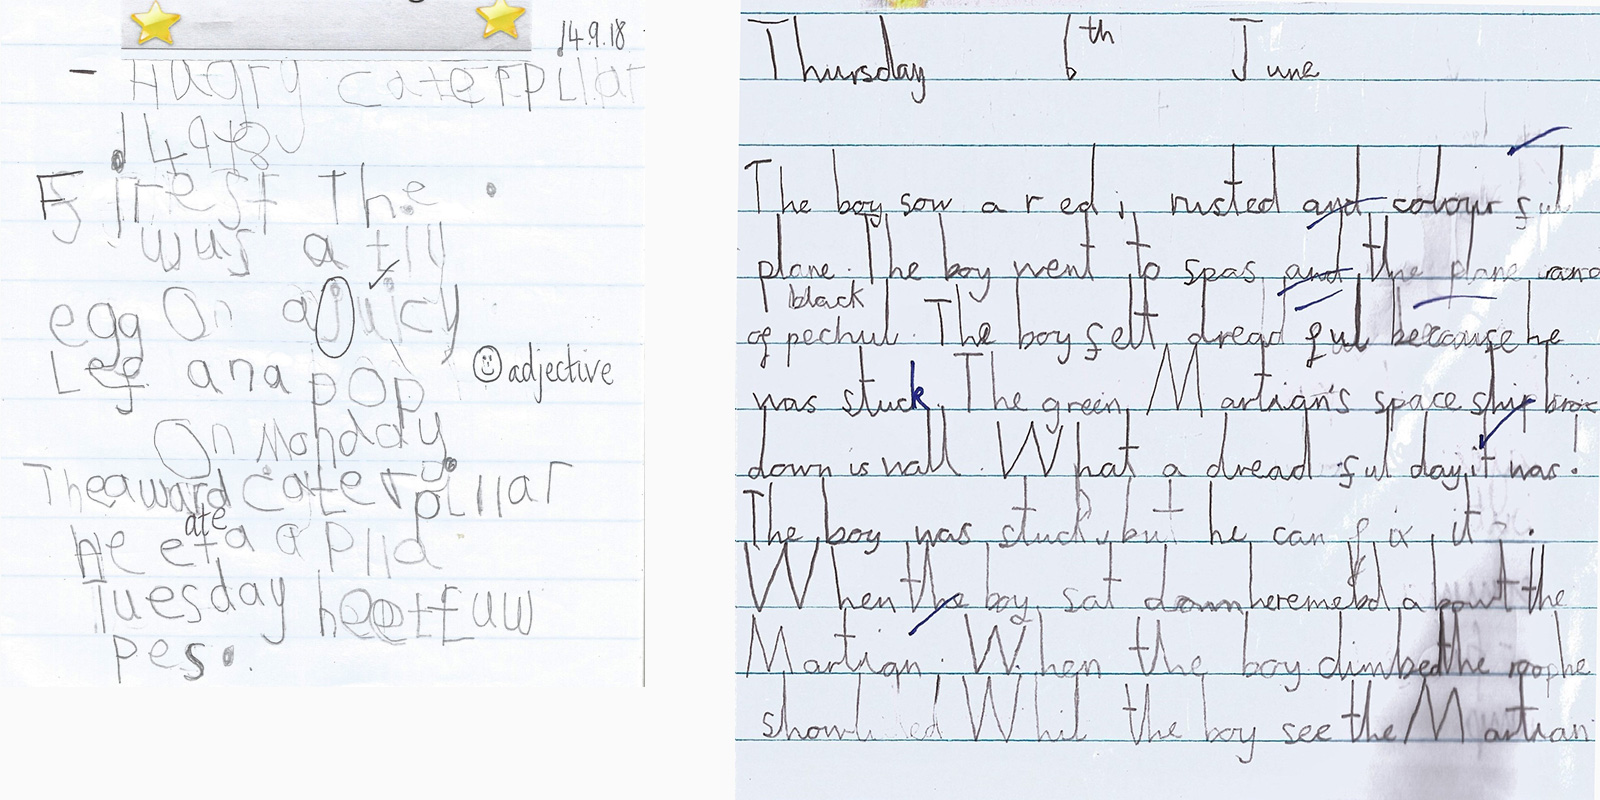 14.9.18
- Hugry caterpillar
14 9 18
Firest The
wus a till
egg On a juicy
Lef ana pop
adjective
On Monday
The award caterpillar
ate
He eta a Plla
Tuesday he et fuw
pes.
Thursday 6th June
The boy sow a red, rusted and colourful
plane. The boy went to spas and the plane rand
black
of pechul. The boy felt dreadful because he
was stuck. The green, Martian's space ship broc
down is wall. What a dreadful day it was.
The boy was stuck, but he can fix it.
When the boy sat down he remebd about the
Martian. When the boy climbed the roophe
The boy see the Martian